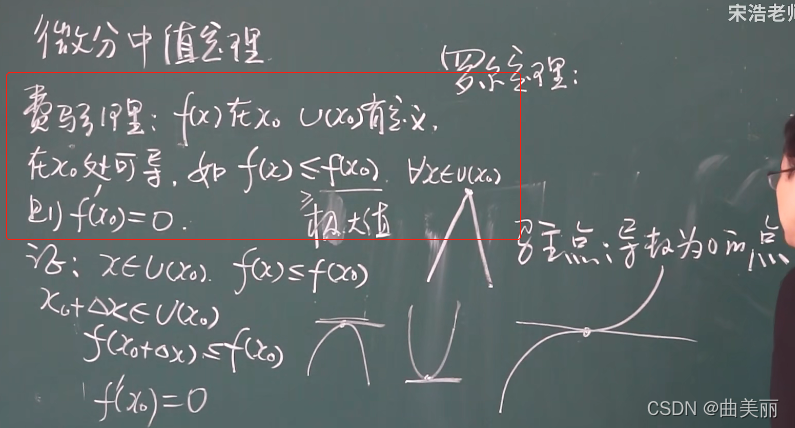 宋浩老师
微分中值定理
罗尔定理:
费马引理: f(x)在x₀ U(x₀)有定义,
在x₀处可导, 如 f(x)≤f(x₀). ∀x∈U(x₀)
≥
则 f'(x₀)=0.
极大值
驻点:导数为0的点
证: x∈U(x₀). f(x)≤f(x₀)
x₀+Δx∈U(x₀)
f(x₀+Δx)≤f(x₀)
f'(x₀)=0
CSDN @曲美丽